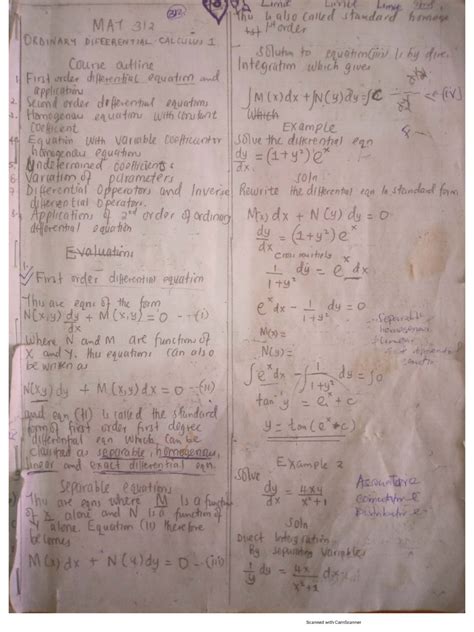 MAT 312
ORDINARY DIFFERENTIAL CALCULUS 1
Course outline
1. First order differential equation and
application
2. Second order differential equations
3. Homogenous equation with constant
coefficient
4. Equation with variable coefficient
homogenous equations
5. Undetermined coefficients
6. Variation of parameters
7. Differential Opperators and Inverse
differential operators
Applications of 2nd order of ordinary
differential equation
Evaluations
First order differential equation
This are eqns of the form
N(x,y) dy/dx + M(x,y) = 0 --- (i)
where N and M are functions of
X and Y. this equations can also
be written as
N(x,y) dy + M(x,y) dx = 0 --(ii)
eqn (ii) is called the standard
form of first order first degree
differential eqn which can be
classified as separable, homogenous,
linear and exact differential eqn.
Separable equations
This are eqns where M is a function
of x alone and N is a function of
y alone. Equation (ii) therefore
becomes
M(x) dx + N(y) dy = 0 --(iii)
This is also called standard
1st order
Solution to equation (iii) is by direct
Integration which gives
∫M(x) dx + ∫N(y) dy = C --(iv)
Which
Example
Solve the differential eqn
dy/dx = (1+y²)eˣ
Soln
Rewrite the differential eqn in standard form
M(x) dx + N(y) dy = 0
dy/dx = (1+y²)eˣ
cross multiply
1/(1+y²) dy = eˣ dx
eˣ dx - 1/(1+y²) dy = 0
M(x) =
N(y) =
- Separable
homogenous
∫eˣ dx - ∫1/(1+y²) dy = ∫0
tan⁻¹ y = eˣ + c
y = tan(eˣ + c)
Example 2
Solve
dy/dx = 4xy/(x²+1)
Soln
Direct Integration
By separating variables
1/y dy = 4x/(x²+1) dx
Scanned with CamScanner